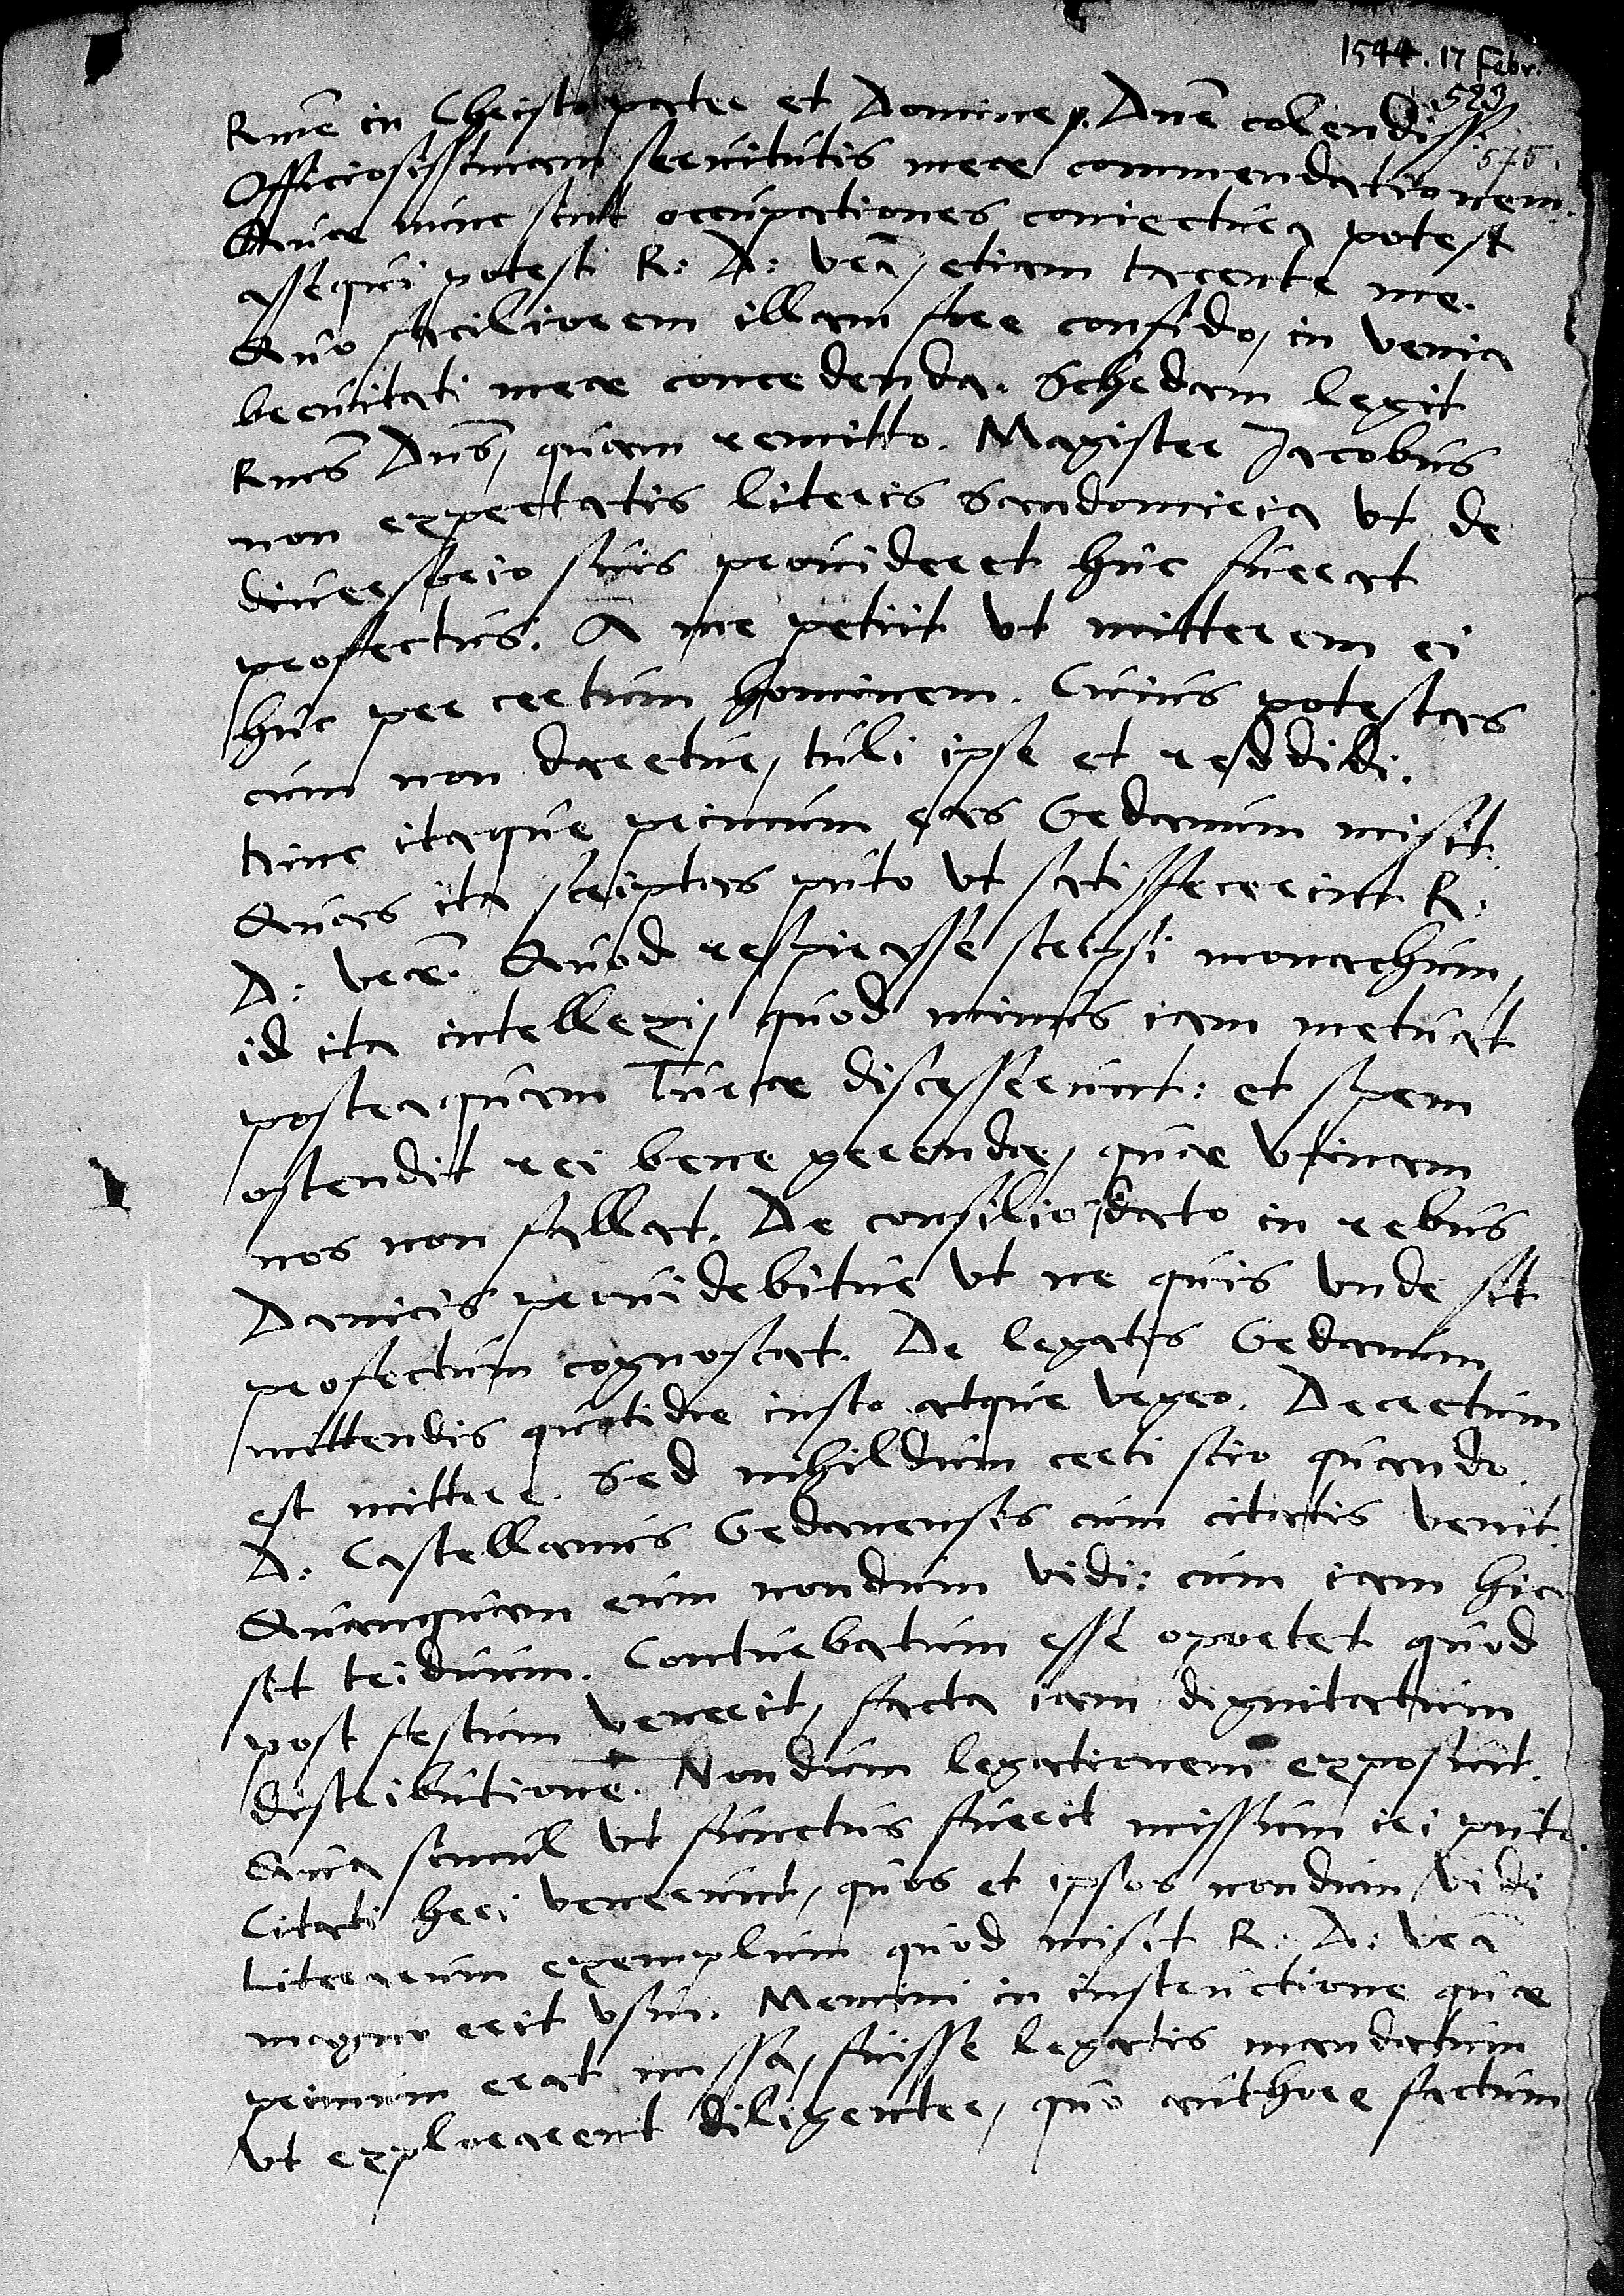 1544. 17 Febr.
523
575.
Rme in Christo pater et Domine, Dne colendiss.
Officiosissimam servitutis meae commendationem.
Quae nunc sint occupationes coniectura potest
assequi potest R: D: vra, etiam tacente me.
Quo faciliorem illam fore confido, in venia
brevitati meae concedenda. Schedam legit
Rmus Dns, quam remitto. Magister Jacobus
non expectatis literis Sandomiria ut de
diversorio suis provideret huc fuerat
profectus. A me petiit ut mitterem ei
huc per certum hominem. Cuius potestas
cum non daretur, tuli ipse et reddidi.
Hinc itaque primum eas Gedanum misit.
Quas ita scriptas puto ut satisfecerint R:
D: vrae. Quod respirasse scripsi monachum,
id ita intellexi, quod minus iam metuat
posteaquam Turcae discesserunt: et spem
ostendit rei bene gerendae, quae utinam
nos non fallat. De consilio dato in rebus
Danicis providebitur ut ne quis unde sit
profectum cognoscat. De legatis Gedanum
mittendis quotidie insto atque urgeo. Decretum
est mittere. Sed nihildum certi scio quando.
D: Castellanus Gedanensis cum citatis venit.
Quanquam eum nondum vidi: cum iam hic
sit triduum. Conturbatum esse oportet quod
post festum venerit, facta iam dignitatum
distributione. Nondum legationem exposuit.
Qua simul ut functus fuerit missum iri puto.
Citati heri venerunt, quos et ipsos nondum vidi
Literarum exemplum quod misit R: D: vra
magno erit usui. Memini in instructione quae
primum erat missa, fuisse legatis mandatum
ut explorarent diligenter, quo authore factum